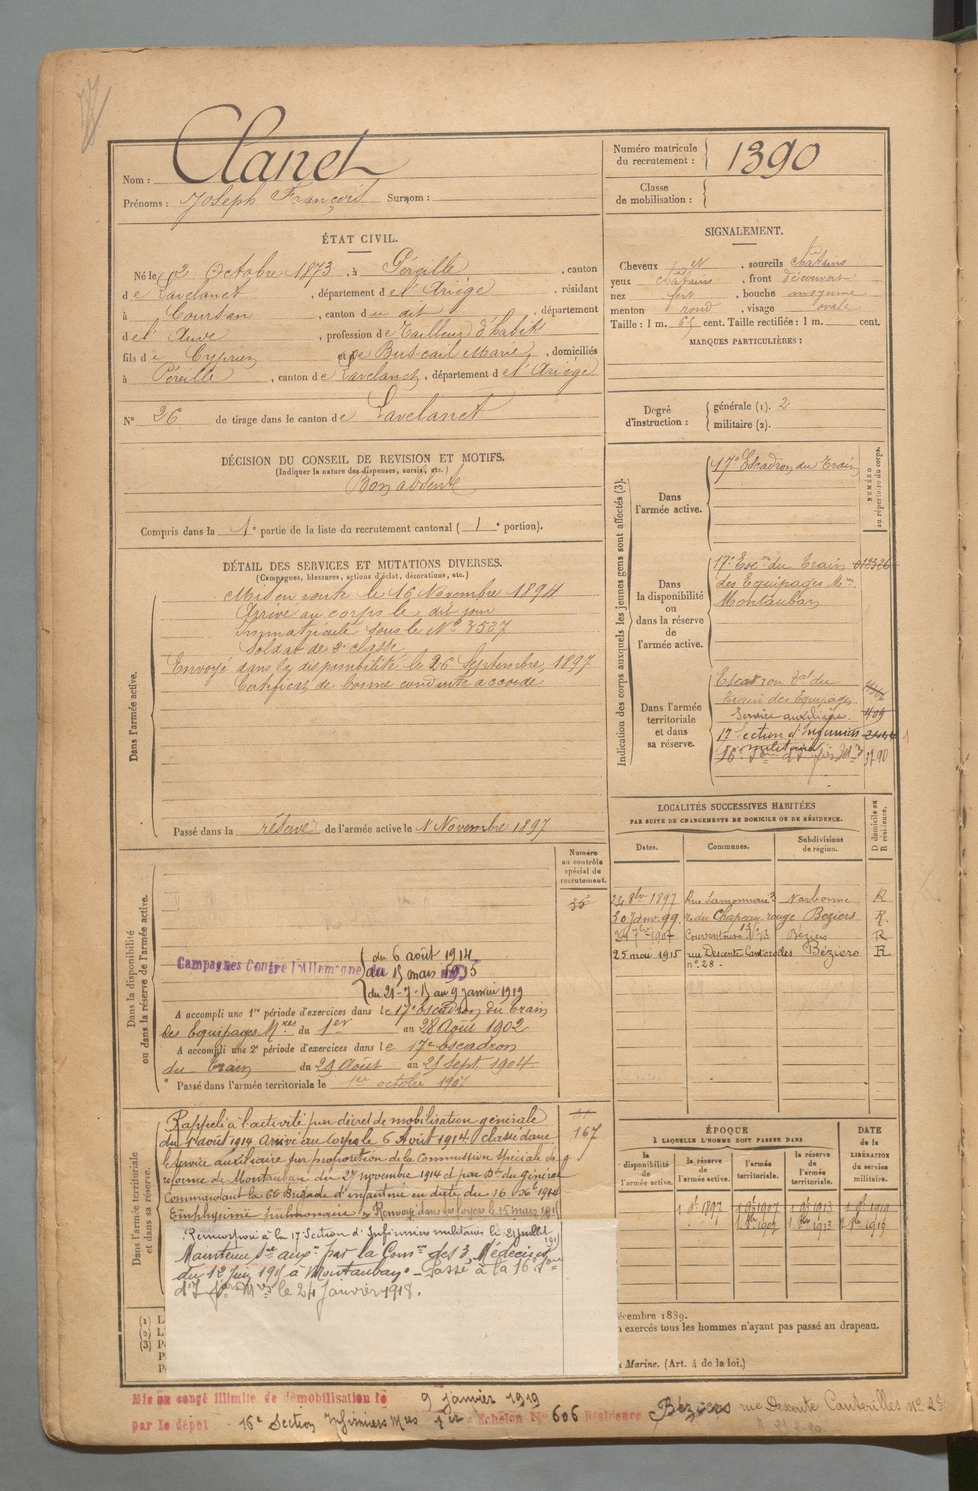 Nom : Clanet
Prénoms : Joseph François Surnom :
Numéro matricule du recrutement : 1390
Classe de mobilisation :
ÉTAT CIVIL.
Né le 2 Octobre 1873, à Péreille, canton
de Lavelanet, département de l'Ariège, résidant
à Coursan, canton du dit, département
de l'Aude, profession de Tailleur d'habits
fils de Cyprien et de Buscail Marie, domiciliés
à Péreille, canton de Lavelanet, département de l'Ariège
N° 26 de tirage dans le canton de Lavelanet
SIGNALEMENT.
Cheveux N, sourcils châtains
yeux châtains, front découvert
nez fort, bouche moyenne
menton rond, visage ovale
Taille : 1 m. 65 cent. Taille rectifiée : 1 m. cent.
MARQUES PARTICULIÈRES :
Degré d'instruction : générale (1). 2
militaire (2).
DÉCISION DU CONSEIL DE REVISION ET MOTIFS.
(Indiquer la nature des dispenses, sursis, etc.)
Bon absent
Compris dans la 1e partie de la liste du recrutement cantonal (1e portion).
DÉTAIL DES SERVICES ET MUTATIONS DIVERSES.
(Campagnes, blessures, actions d'éclat, décorations, etc.)
Dans l'armée active.
Mis en route le 16 Novembre 1894
Arrivé au corps le dit jour
Immatriculé sous le N° 3527
Soldat de 2e classe
Envoyé dans la disponibilité le 26 Septembre 1897
Certificat de bonne conduite accordé
Passé dans la réserve de l'armée active le 1 Novembre 1897
Indication des corps auxquels les jeunes gens sont affectés (3).
NUMÉRO au répertoire du corps.
Dans l'armée active.
17e Escadron du Train
Dans la disponibilité ou dans la réserve de l'armée active.
17e Esc.on du Train
des Equipages M.res
Montauban
Dans l'armée territoriale et dans sa réserve.
Escadron t.al du
Train des Equipages
Service auxiliaire 409
17 Section d'Infirmiers
militaires
3790
LOCALITÉS SUCCESSIVES HABITÉES
PAR SUITE DE CHANGEMENTS DE DOMICILE OU DE RÉSIDENCE.
D domicile ou R résidence.
Dates. Communes. Subdivisions de région.
Narbonne R
20 Janv. 99 r. du Chapeau rouge Béziers R.
24 7bre 1901 Béziers R
25 mai 1915 rue Descente Canterelles Béziers R
n° 28.
Dans la disponibilité ou dans la réserve de l'armée active.
Numéro au contrôle spécial du recrutement.
Campagnes Contre l'Allemagne du 6 août 1914
au 15 mars 1915
du 21-7-15 au 9 janvier 1919
A accompli une 1re période d'exercices dans le 17e Escadron du Train
des Equipages Mres du 1er au 28 Août 1902
A accompli une 2e période d'exercices dans le 17e Escadron
du Train du 29 Août au 25 Sept. 1904
Passé dans l'armée territoriale le 1er octobre 1907
Dans l'armée territoriale et dans sa réserve.
Rappelé à l'activité par décret de mobilisation générale
du 1er août 1914. Arrivé au corps le 6 Août 1914. Classé dans
le service auxiliaire sur proposition de la Commission Spéciale de
réforme de Montauban du 27 novembre 1914 et par Don du Général
Commandant la 66e Brigade d'infanterie en date du 16 Xbre 1914
Emphysème pulmonaire. Renvoyé dans ses foyers le 15 mars 1915
167
Remobilisé à la 17e Section d'Infirmiers militaires le 21 juillet 1915
Maintenu Sce auxre par la Comon des 3 Médecins
du 12 juin 191 à Montauban. Passé à la 16e Son
d'Infers Mres le 24 Janvier 1918.
ÉPOQUE
À LAQUELLE L'HOMME DOIT PASSER DANS
DATE de la LIBÉRATION du service militaire.
la disponibilité de l'armée active. la réserve de l'armée active. l'armée territoriale. la réserve de l'armée territoriale.
1 9bre 1897 1 9bre 1907 1 9bre 1913 1 9bre 1919
1 8bre 1907 1 8bre 1913 1 8bre 1919
(1) L
(2) L
(3) P
écembre 1889.
exercés tous les hommes n'ayant pas passé au drapeau.
Marine. (Art. 4 de la loi.)
Mis en congé illimité de démobilisation le 9 janvier 1919
par le dépôt 16e Section Infirmiers Mres 1er Echelon N° 606 Résidence Béziers rue Descente Canterelles n° 28